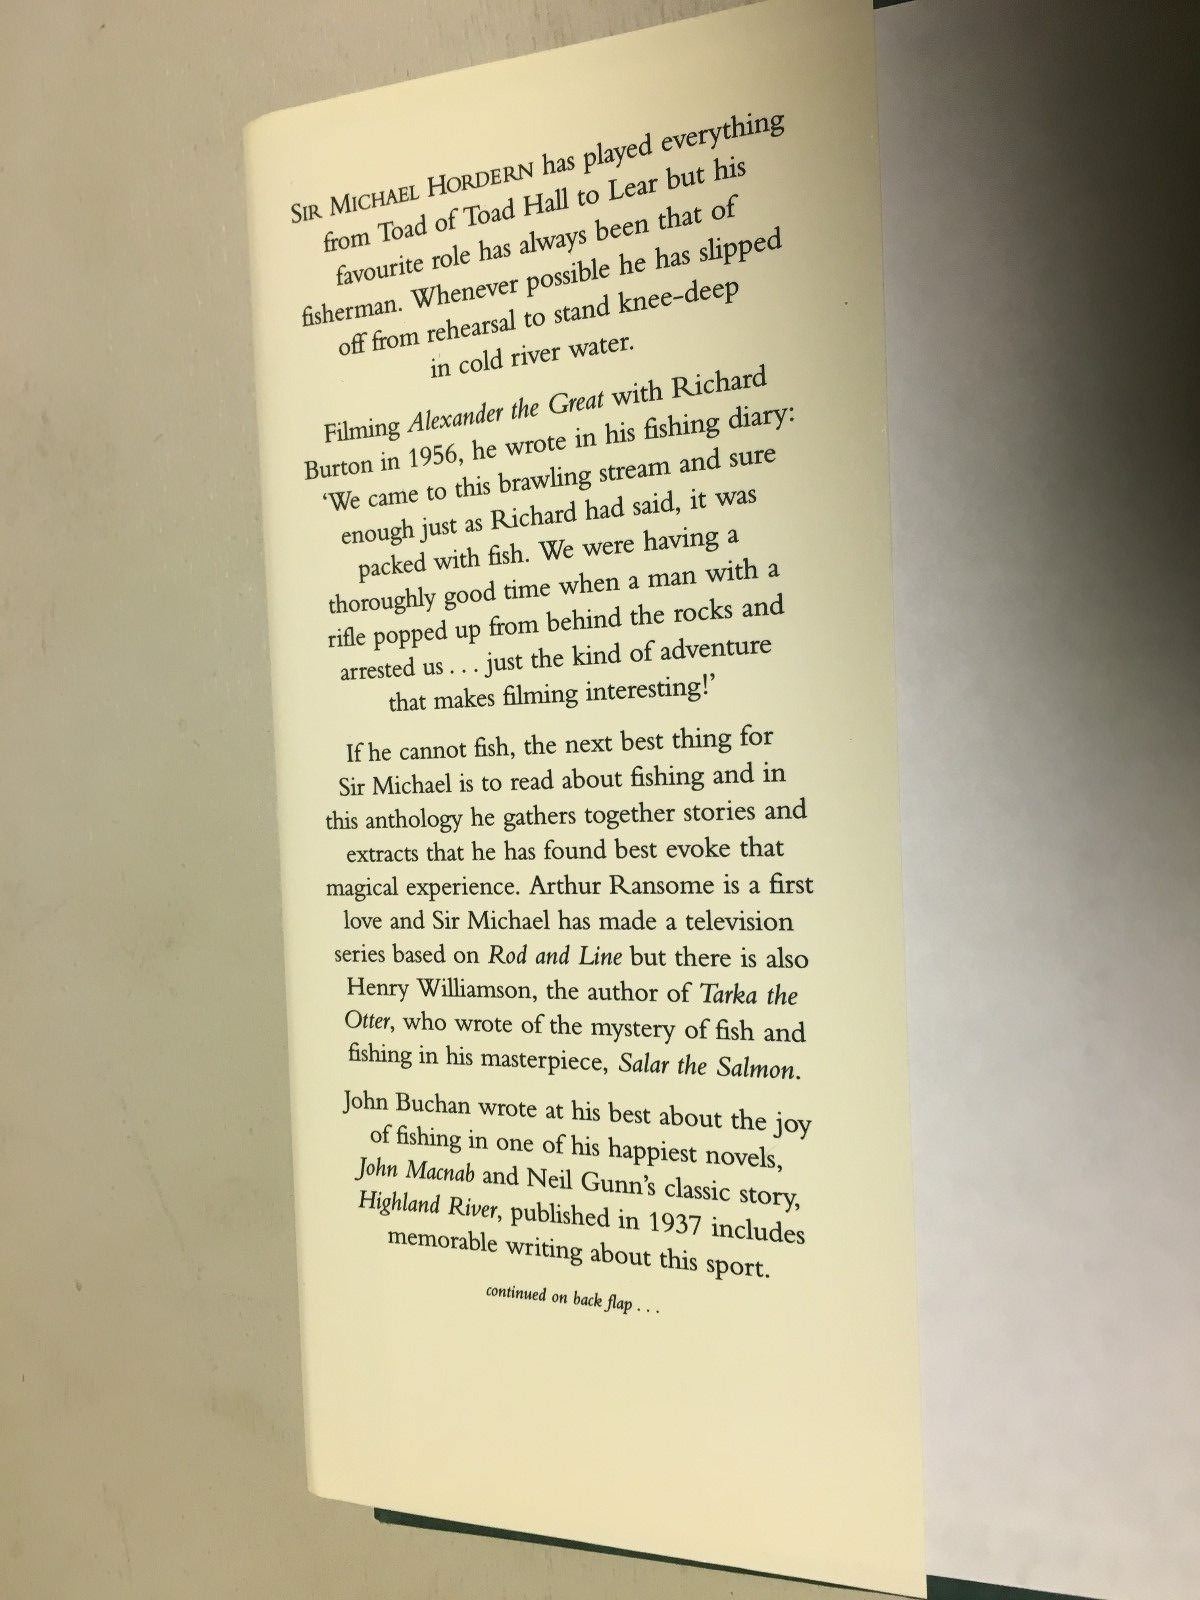 SIR MICHAEL HORDERN has played everything
from Toad of Toad Hall to Lear but his
favourite role has always been that of
fisherman. Whenever possible he has slipped
off from rehearsal to stand knee-deep
in cold river water.
Filming Alexander the Great with Richard
Burton in 1956, he wrote in his fishing diary:
‘We came to this brawling stream and sure
enough just as Richard had said, it was
packed with fish. We were having a
thoroughly good time when a man with a
rifle popped up from behind the rocks and
arrested us . . . just the kind of adventure
that makes filming interesting!’
If he cannot fish, the next best thing for
Sir Michael is to read about fishing and in
this anthology he gathers together stories and
extracts that he has found best evoke that
magical experience. Arthur Ransome is a first
love and Sir Michael has made a television
series based on Rod and Line but there is also
Henry Williamson, the author of Tarka the
Otter, who wrote of the mystery of fish and
fishing in his masterpiece, Salar the Salmon.
John Buchan wrote at his best about the joy
of fishing in one of his happiest novels,
John Macnab and Neil Gunn’s classic story,
Highland River, published in 1937 includes
memorable writing about this sport.
continued on back flap . . .